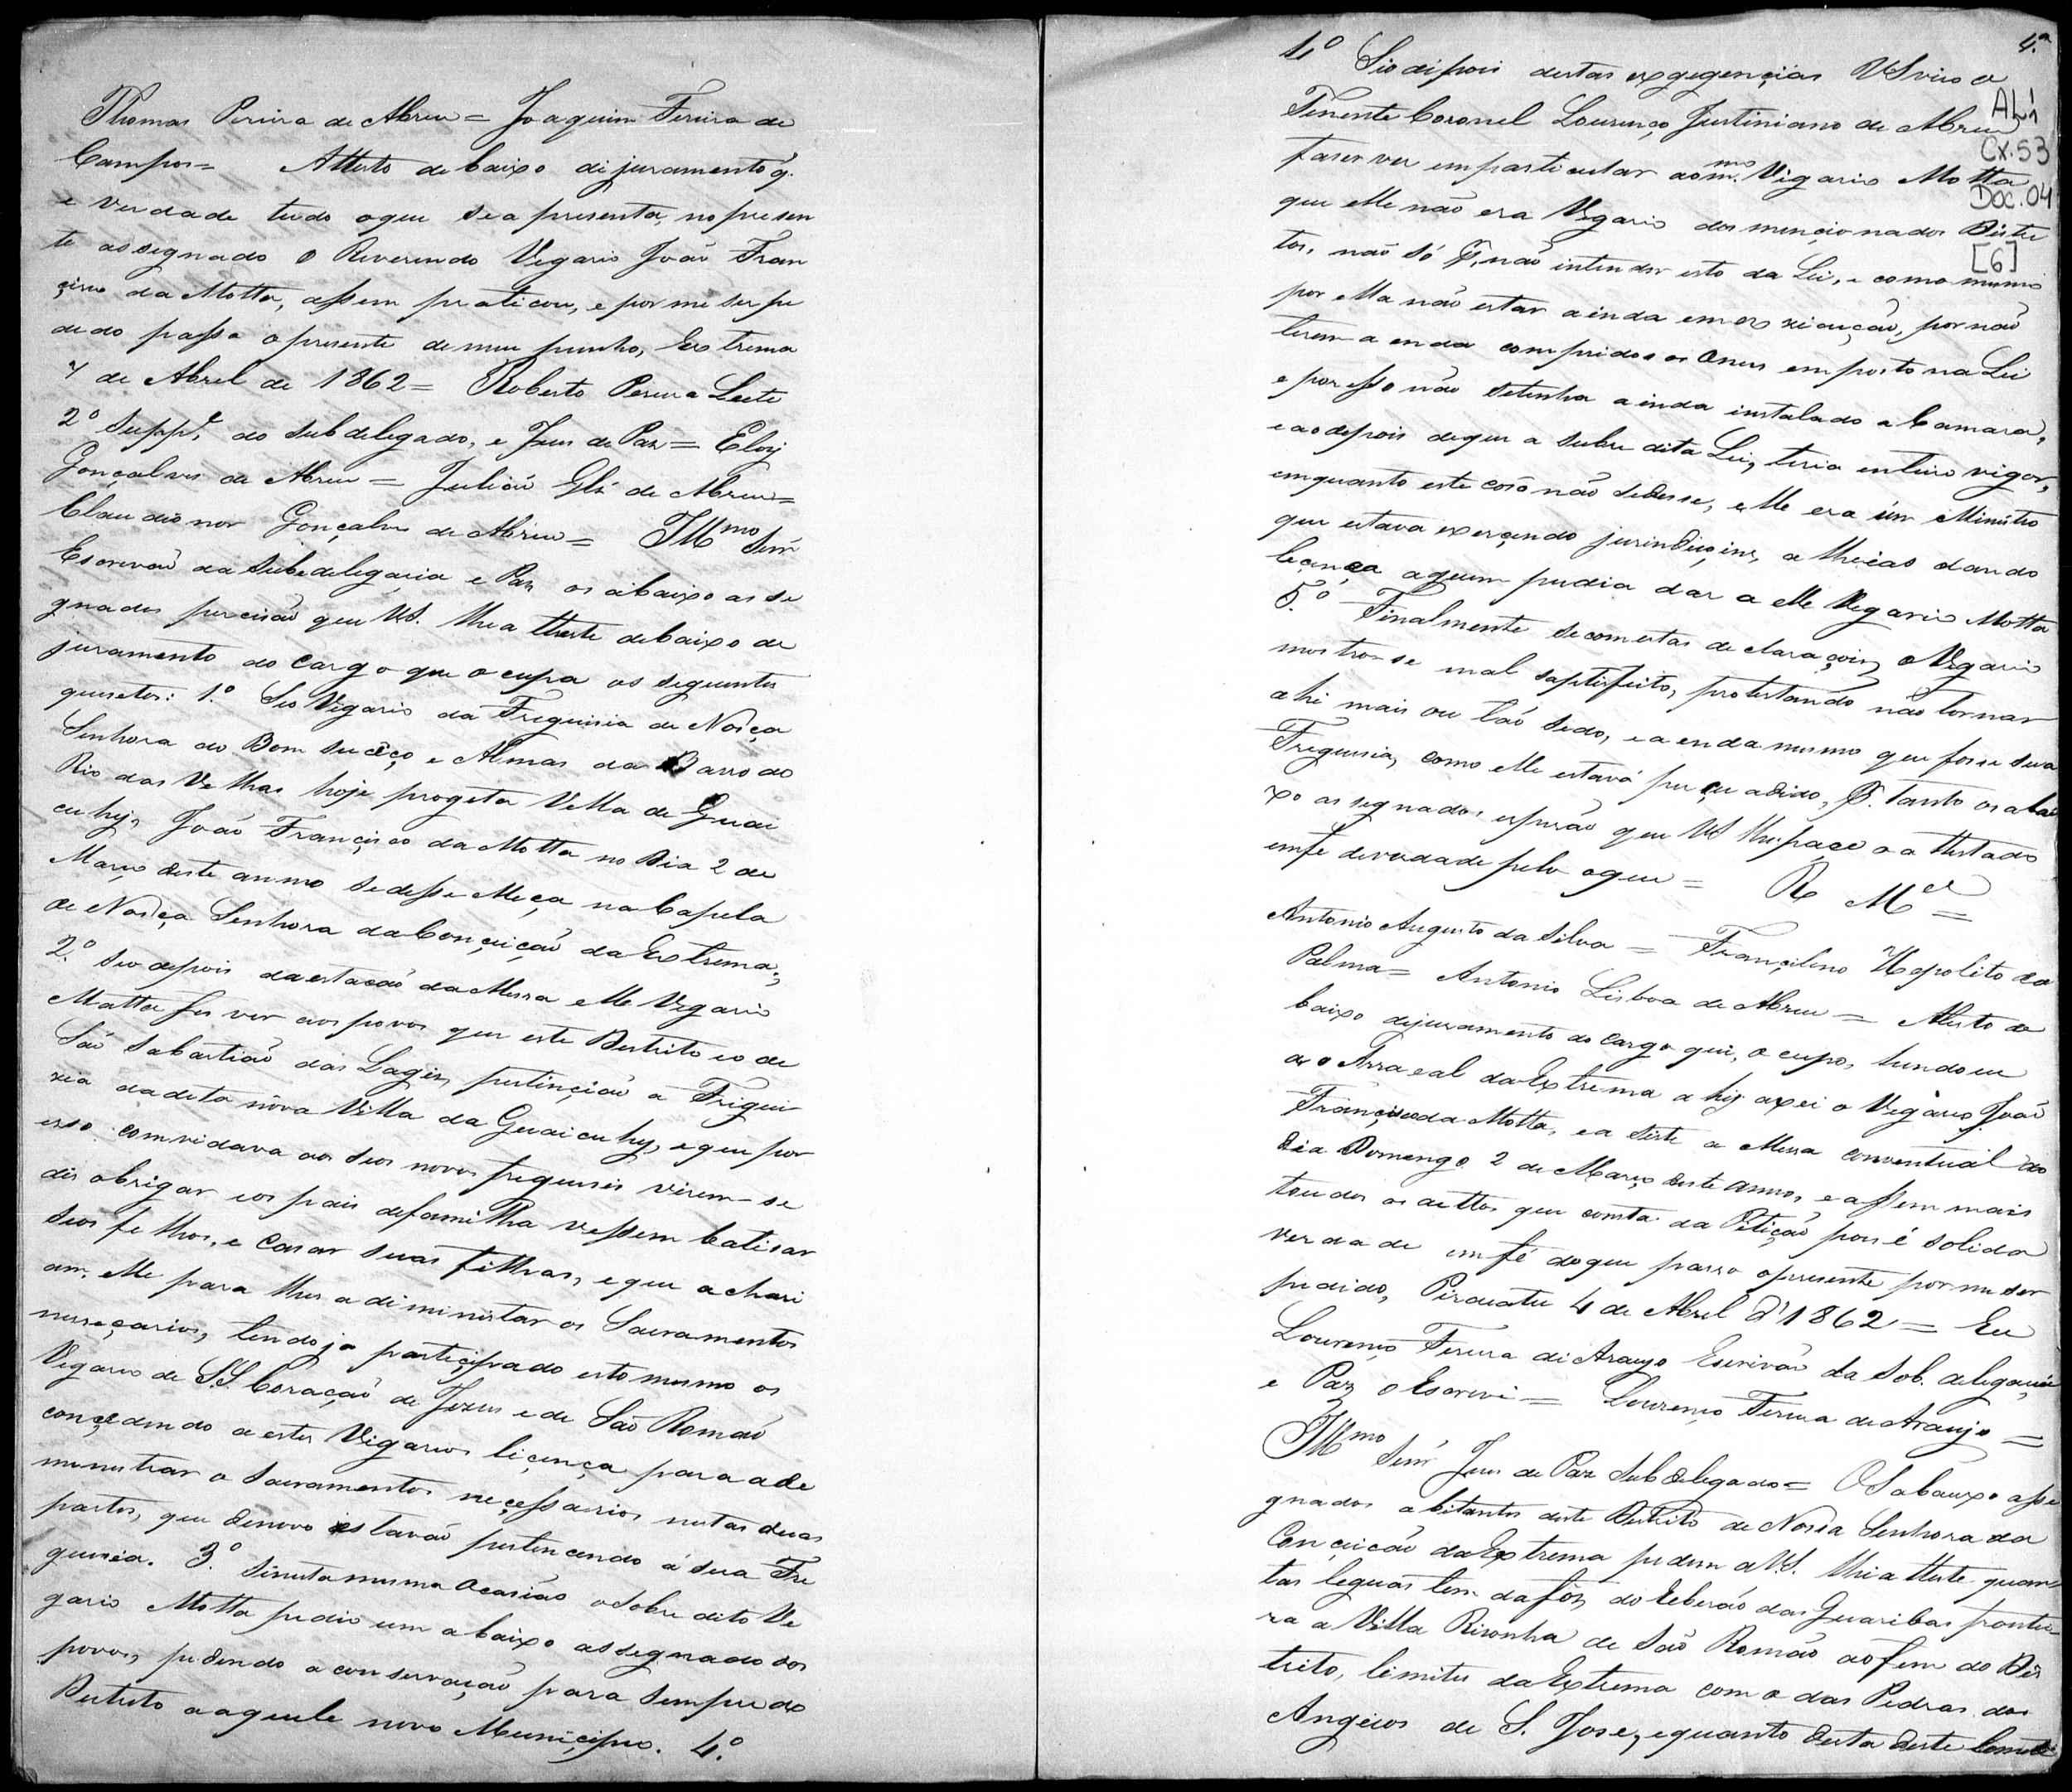 Thomas Pereira de Abreu = Joaquim Fereira de
Campos = Attesto debaixo dijuramento q.
e verdade tudo oque sea presenta, no presen
te assegnado O Reverendo Vegario João Fran
çisco da Motta, assem praticou, e por me ser pe
dedo passo o presente demeu punho, Extrema
4 de Abrel de 1862 = Roberto Pereira Leete
2º Supp.e do subdelegado, e Jues de Paz = Eloy
Gonçalves de Abreu = Julião Glz' de Abreu =
Claudionor Gonçalves de Abreu = Illmo Senr
Escrevão da Subedelegacia e Paz os abaixo asse
gnados percisão que VS. lhe a tteste debaixo de
juramento do cargo que ocupa os seguintes
quesetos: 1.º Seo Vegario da Freguisia de Noiça
Senhora do Bom sucêço e Almas da Barra do
Rio das Velhas hoje progeta Vella de Guai
cuhy, João Françisco da Motta no Dia 2 de
Março deste anmo sedesse Meça na Capela
de Noiça Senhora da Conçeição da Extrema;
2.º Seo depois da estação da Messa elle Vegario
Motta fes ver aos povos que este Destrito eo de
São Sabastião das Lages, pertinçião a Frigui
sia da dita nova Villa da Guaicuhy, eque por
esso comvidava aos seos novos freguesis virem-se
dis obrigar eos pais defamilha vessem batisar
seos felhos, e casar suas filhas, eque achari
am, elle para lhes adiministar os Sacramentos
nesseçarios, tendo ja parteçipado esto mesmo os
Vegarios de SS. Coração de Jezus e de São Romão
conçedendo a estes Vigarios liçença para ade
menestrar o Sacramentos neçessaerios nestas duas
partes, que denovo estavão pertencendo á sua Fre
guisia. 3.º Sinestamesma Ocasião oSobre dito Ve
gario Motta pedio um abaixo assegnado dos
povos, pedendo a conservação para sempre do
Destrito aaquele novo Munçipio. 4.º
4.ª
4º Sio dipois destas exgegençias VS vio o
AL1
Tenente Coronel Lourenço Justiniano de Abreu
Cx. 53
faser ver emparticular aom.mo Vigario Motta
Doc. 04
que elle não era Vegario dos mençionados Distre
[6]
tos, não só P. não intender esto da Lei, e como mesmo
por ella não estar ainda em exzicução, por não
terem a enda compridos os Oneus emposto na Lei
e por esso não setinha ainda instalado a Camara,
e ao depois deque a subre dita Lei, teria enteiro vigor,
emquanto este coio não sedesse, elle era úm Menistro
que estava exerçendo jurindiçoins, alheias dando
leçença aquem pudia dar a elle Vegario Motta
5.º Finalmente secomestas declaraçois, o Vegario
mostrou-se mal saptisfeito, protestando não tornar
ahi mais ou tão sedo, e a enda mesmo que fosse sua
Freguesia, como elle estavá perçuadido, P. tanto os abai
xo assegnados, esperão que VS lhe paçe o a ttestado
emfé deverdade pelo oque = R Mce =
Antonio Augusto da Silva = Françilino Hepolito da
Palma = Antonio Lisboa de Abreu = Atesto de
baixo dejuramento do cargo qui, ocupo, tundo eu
ao Arraeal da Extrema ahy axei o Vegario João
Françisco da Motta, e a siste a Messa conventual do
Dia Domengo 2 de Março deste anno, e assem mais
toudos os aettos que consta da Petição pois é solida
verdade em fé doque passo opresente por me ser
pedido, Piraeatu 4 de Abrel d'1862 = Eu
Lourenço Fereira di Araujo Escrivão da Sob. delegaçia
e Paz o Escrevi = Lourenço Fereira de Araujo =
Illmo Senr' Jues de Paz Subdelegado = OS abaixo asse
gnados abitantes deste Destrito de Nossa Senhora da
Conçeição da Extrema pedem a V.S. lhe a tteste quan
tas leguas tem da fós, do Reberão das Guaribas frontei
ra a Villa Risonha de São Romão ao fem do Dis
treito, limites da Extrema com o das Pedras dos
Angicos de S. Jose, equanto desta deste